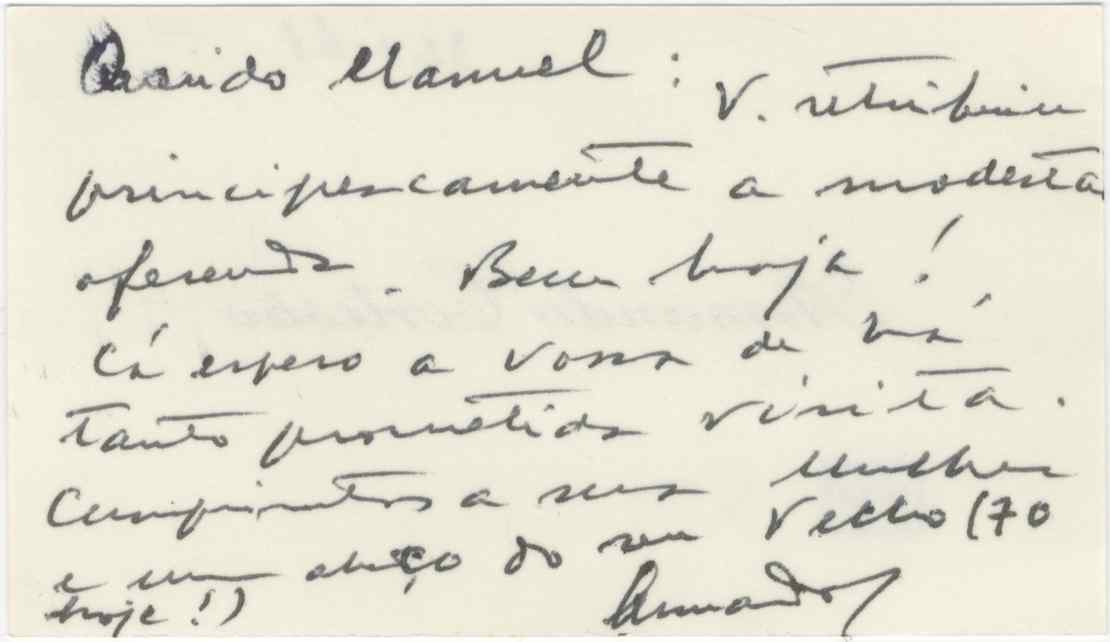 Querido Manuel :
V. retribuiu
principescamente a modesta
oferenda. Bem haja !
Cá espero a vossa de há
tanto prometida visita.
Cumprimentos a sua mulher
e um abraço do seu Velho (70
hoje !)
Armando